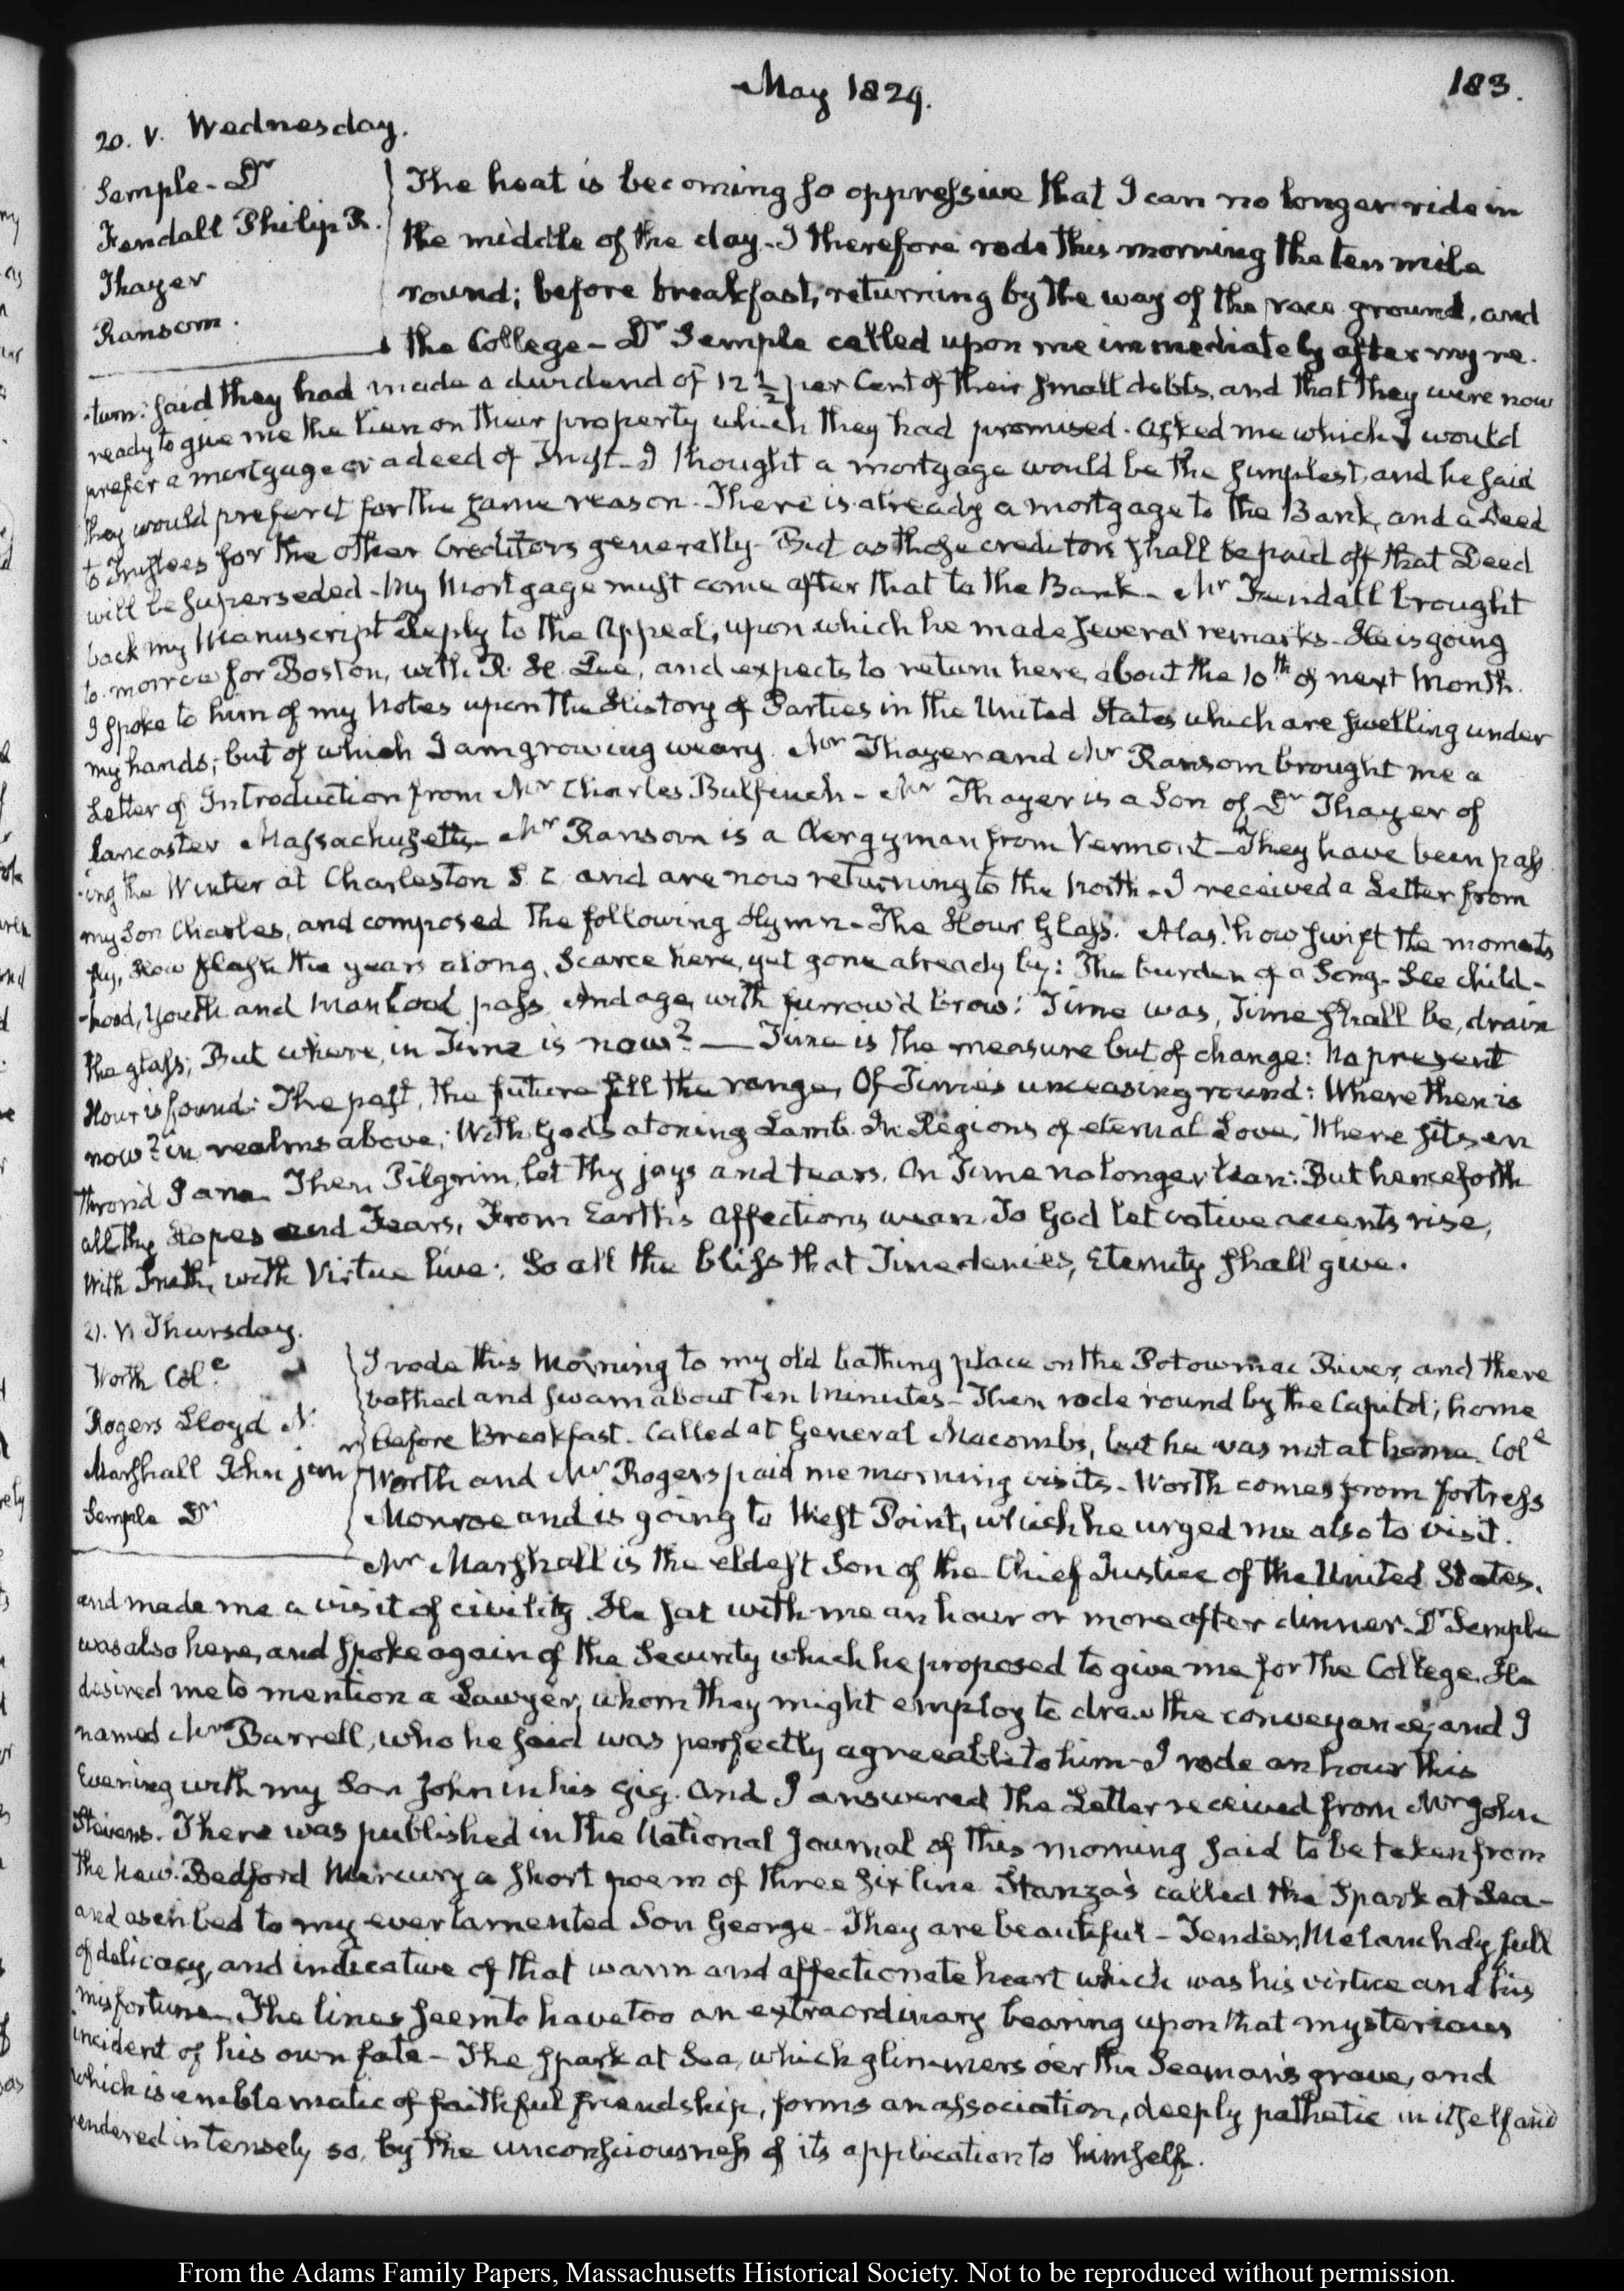 May 1829.
183.
20. V. Wednesday.
Semple - Dr
Fendall Philip R.
Thayer
Ransom.
The heat is becoming so oppressive that I can no longer ride in
the middle of the day - I therefore rode this morning the ten mile
round; before breakfast, returning by the way of the race ground, and
the College - Dr Semple called upon me immediately after my re-
-turn: said they had made a dividend of 12 1/2 per Cent of their small debts, and that they were now
ready to give me the lien on their property which they had promised. asked me which I would
prefer a mortgage or a deed of Trust - I thought a mortgage would be the simplest, and he said
they would prefer it for the same reason - There is already a mortgage to the Bank, and a Deed
to Trustees for the other Creditors generally - But as those creditors shall be paid off that Deed
will be superseded - My Mortgage must come after that to the Bank - Mr Fendall brought
back my Manuscript Reply to the Appeal, upon which he made several remarks - He is going
to-morrow for Boston, with R. H. Lee, and expects to return here, about the 10th of next Month.
I spoke to him of my Notes upon the History of Parties in the United States which are swelling under
my hands; but of which I am growing weary. Mr Thayer and Mr Ransom brought me a
Letter of Introduction from Mr Charles Bulfinch - Mr Thayer is a Son of Dr Thayer of
Lancaster Massachusetts - Mr Ransom is a Clergyman from Vermont - They have been pass
-ing the Winter at Charleston S C and are now returning to the North - I received a Letter from
my Son Charles, and composed the following Hymn - The Hour Glass. Alas! how swift the moments
fly, How flash the years along, Scarce here, yet gone already by: The burden of a Song - See child-
-hood, Youth and Manhood pass And age, with furrow'd brow: Time was, Time shall be, drain
the glass; But where, in Time is now? — Time is the measure but of change: No present
Hour is found: The past, the future fill the range, Of Time's unceasing round: Where then is
now? in realms above; With God's atoning Lamb In Regions of eternal Love, Where sits en
thron'd I am. Then Pilgrim, let thy joys and tears, On Time no longer lean: But henceforth
all thy Hopes and Fears, From Earth's Affections wean. To God let votive accents rise,
With Truth, with Virtue live: So all the bliss that Time denies, Eternity shall give.
21. V. Thursday.
Worth Cole
Rogers Lloyd N.
Marshall John junr
Semple Dr
I rode this Morning to my old bathing place on the Potowmac River, and there
bathed and swam about ten minutes - Then rode round by the Capitol; home
before Breakfast. Called at General Macombs, but he was not at home. Cole
Worth and Mr Rogers paid me morning visits - Worth comes from Fortress
Monroe and is going to West Point, which he urged me also to visit.
Mr Marshall is the eldest Son of the Chief Justice of the United States,
and made me a visit of civility. He sat with me an hour or more after dinner - Dr Semple
was also here, and spoke again of the Security which he proposed to give me for the College. He
desired me to mention a Lawyer, whom they might employ to draw the conveyance; and I
named Mr Barrell, who he said was perfectly agreeable to him - I rode an hour this
Evening with my Son John in his gig. And I answered the Letter received from Mr John
Stevens. There was published in the National Journal of this morning said to be taken from
the New Bedford Mercury a short poem of three six line Stanza's called the Spark at Sea -
and ascribed to my ever lamented Son George - They are beautiful - Tender, Melancholy, full
of delicacy, and indicative of that warm and affectionate heart which was his virtue and his
misfortune. The lines seem to have too an extraordinary bearing upon that mysterious
incident of his own fate - The spark at Sea, which glimmers o'er the Seaman's grave, and
which is emblematic of faithful friendship, forms an association, deeply pathetic in itself and
rendered intensely so, by the unconsciousness of its application to himself.
From the Adams Family Papers, Massachusetts Historical Society. Not to be reproduced without permission.